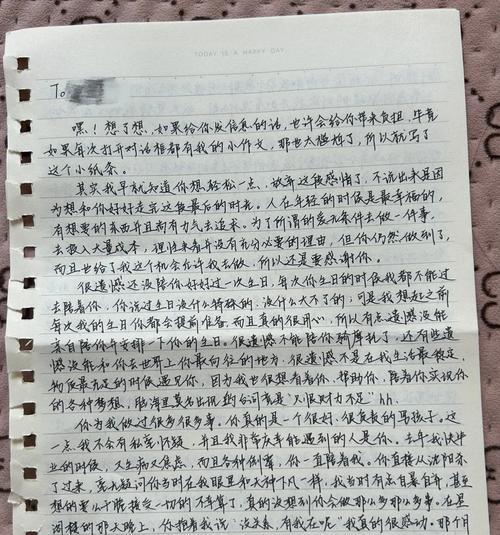 TODAY IS A HAPPY DAY
To
嘿！想了想，如果给你发信息的话，也许会给你带来负担，毕竟
如果每次打开对话框都有我的小作文，那也太尴尬了，所以就写了
这个小纸条。
其实我早就知道你想轻松一点、放弃这段感情了，不说出来是因
为想和你好好走完这段最后的时光。人在年轻的时候是最幸福的，
有想要的东西并且尚有力气去追求。为了所谓的爱无条件去做一件事，
去投入大量成本，理性来看并没有充分必要的理由，但你仍然做到了，
而且也给了我这个机会允许我去做，所以还是要感谢你。
很遗憾还没陪你好好过一次生日，每次你生日的时候我都不能过
去陪着你，你说过生日没什么特殊的，没什么大不了的，可是我想起之前
每次我的生日你都会提前准备，而且真的很用心，所以有点遗憾没能
亲自陪你并安排一下你的生日。很遗憾不能陪你骑摩托了，还有些遗
憾没能和你去世界上你最向往的地方，很遗憾不是在我生活最稳定，
物质最充足的时候遇见你，因为我也很想看着你，帮助你，陪着你实现你
的各种梦想，脑海里莫名出现的台词竟是“只恨财力不足”hh．
你为我做过很多很多事。你真的是一个很好、很负责的男孩子。这
一点我不会有私毫怀疑，并且我非常庆幸能遇到的人是你。去年我快毕
业的时候，又生病又焦虑，而且各种倒霉，你一直陪着我。你直接从沈阳杀
了过来，毫无疑问你当时在我眼里和大神下凡一样。我当时有点自暴自弃，甚至
想的要么干脆接受一切的不幸算了，真的没想到你会做那么多那么多事。在星
的那天晚上，你抱着我说“没关系，有我在呢”我真的很感动。那个月